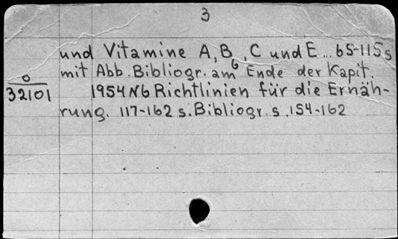 3
und Vitamine A, B6, C und E ... 65-115 s
mit Abb. Bibliogr. am Ende der Kapit.
0
32101
1954 N6 Richtlinien für die Ernäh-
rung. 117-162 s. Bibliogr. s. 154-162